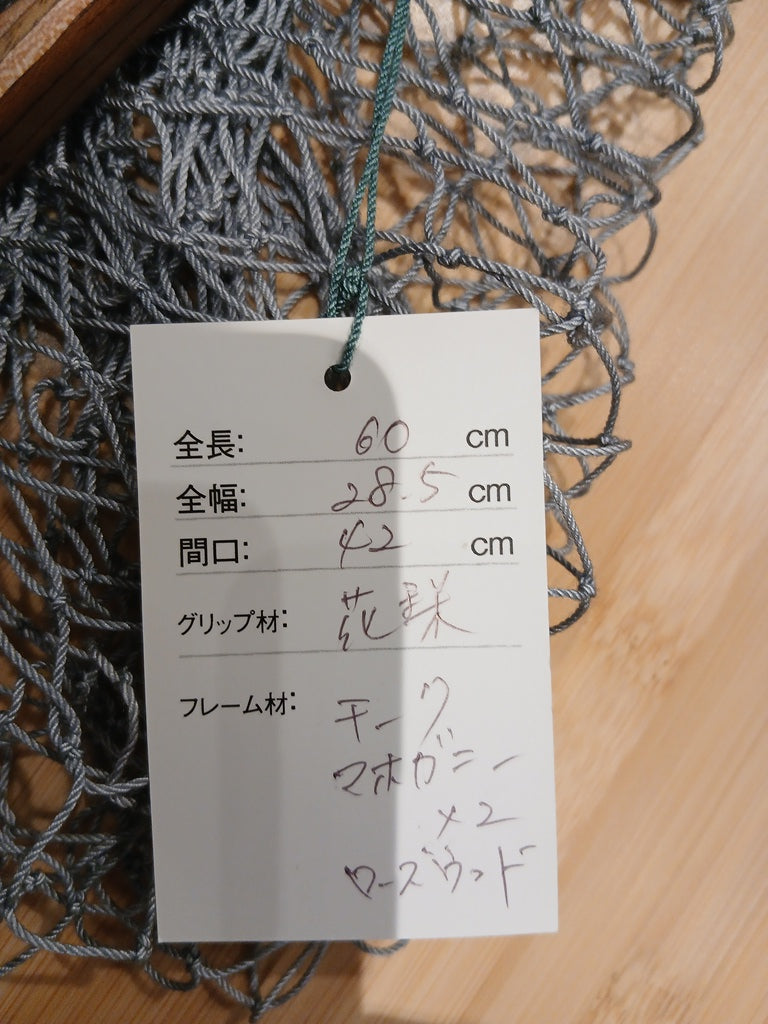 全長: 60 cm
全幅: 28.5 cm
間口: 42 cm
グリップ材: 花梨
フレーム材: チーク
マホガニー
×2
ローズウッド